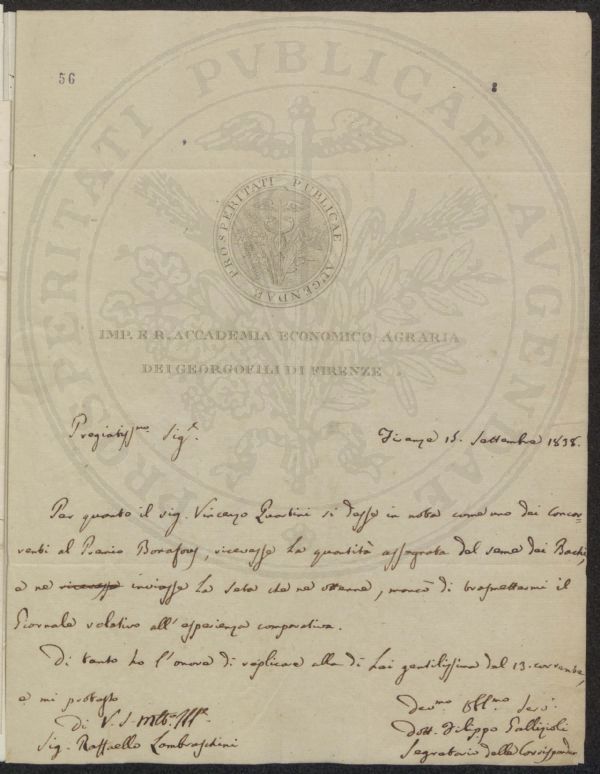 56
PROSPERITATI PUBLICAE AUGENDAE
IMP. E R. ACCADEMIA ECONOMICO-AGRARIA
DEI GEORGOFILI DI FIRENZE
Pregiatiss.mo Sig.r
Firenze 15. Settembre 1838.
Per quanto il sig. Vincenzo Quartini si desse in nota come uno dei Concor-
renti al Premio Bonafous, ricevesse la quantità assegnata del seme dei Bachi,
e ne ricevesse inviasse la seta che ne ottenne, mancò di trasmettermi il
Giornale relativo all'esperienza comparativa.
Di tanto ho l'onore di replicare alla di Lei gentilissima del 13. corrente,
e mi protesto
Di V. S. Mto. Ill.e
Sig. Raffaello Lambruschini
Dev.mo Obb.mo Serv.
Dott. Filippo Gallizioli
Segretario delle Corrispondenze
PROSPERITATI PVBLICAE AVGENDAE